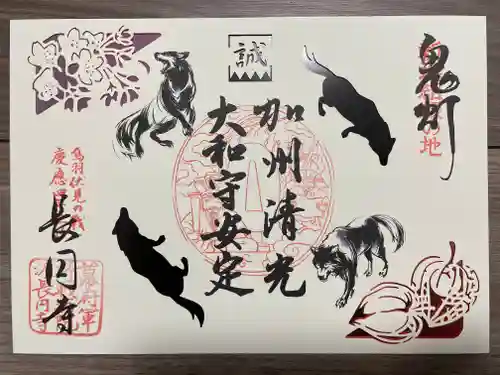 誠
鬼灯
の地
加州清光
大和守安定
鳥羽伏見の戦
慶應
長円寺
長円寺